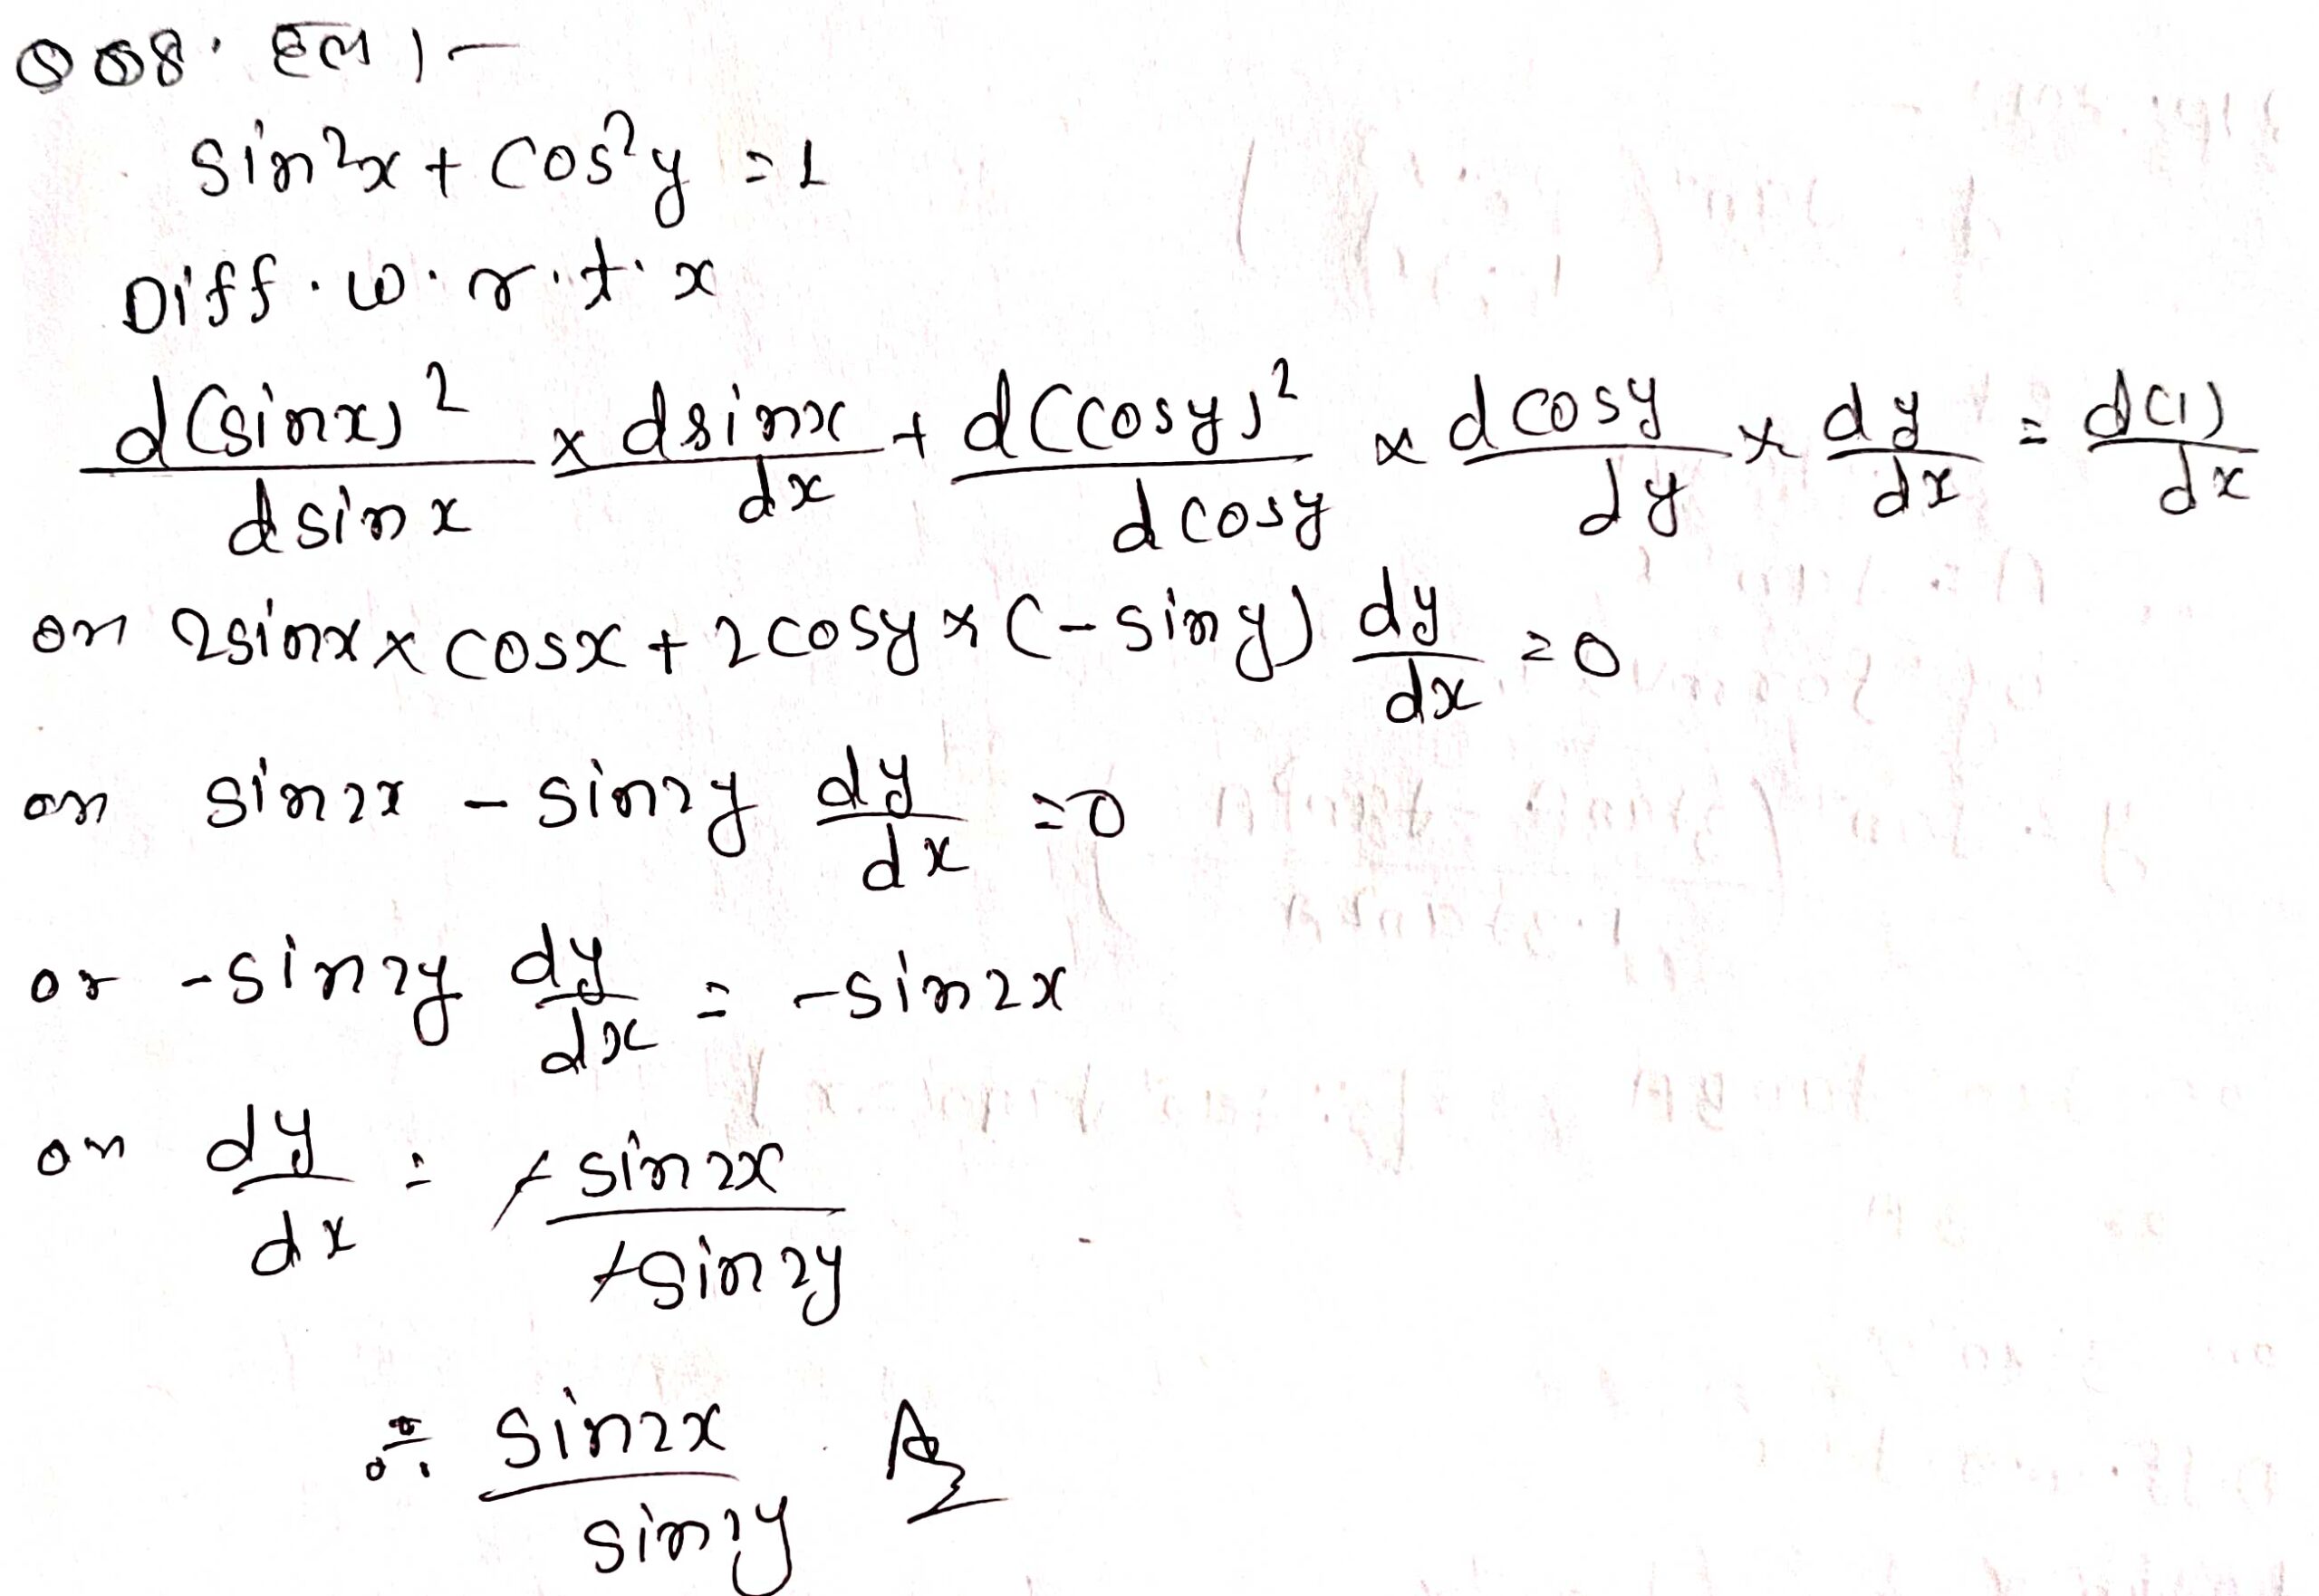 Q 08. हल :-
sin²x + cos²y = 1
Diff. w.r.t. x
d(sinx)²/dsinx × dsinx/dx + d(cosy)²/dcosy × dcosy/dy × dy/dx = d(1)/dx
or 2sinx × cosx + 2cosy × (-siny) dy/dx = 0
or sin2x - sin2y dy/dx = 0
or -sin2y dy/dx = -sin2x
or dy/dx = -sin2x/-sin2y
= sin2x/sin2y